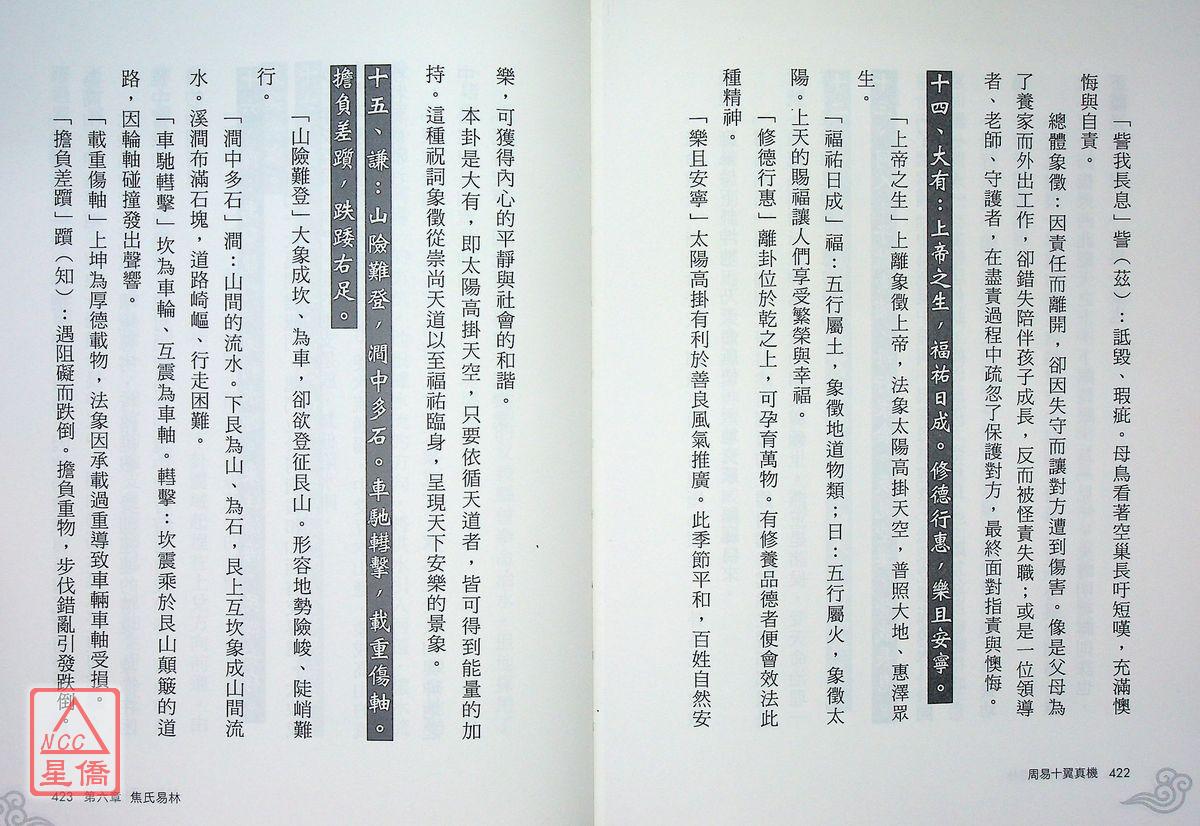 「訾我長息」訾（茲）：詆毀、瑕疵。母鳥看著空巢長吁短嘆，充滿懊
悔與自責。
總體象徵：因責任而離開，卻因失守而讓對方遭到傷害。像是父母為
了養家而外出工作，卻錯失陪伴孩子成長，反而被怪責失職；或是一位領導
者、老師、守護者，在盡責過程中疏忽了保護對方，最終面對指責與懊悔。
十四、大有：上帝之生，福祐日成。修德行惠，樂且安寧。
「上帝之生」上離象徵上帝，法象太陽高掛天空，普照大地、惠澤眾
生。
「福祐日成」福：五行屬土，象徵地道物類；日：五行屬火，象徵太
陽。上天的賜福讓人們享受繁榮與幸福。
「修德行惠」離卦位於乾之上，可孕育萬物。有修養品德者便會效法此
種精神。
「樂且安寧」太陽高掛有利於善良風氣推廣。此季節平和，百姓自然安
周易十翼真機 422
樂，可獲得內心的平靜與社會的和諧。
本卦是大有，即太陽高掛天空，只要依循天道者，皆可得到能量的加
持。這種祝詞象徵從崇尚天道以至福祐臨身，呈現天下安樂的景象。
十五、謙：山險難登，澗中多石。車馳轊擊，載重傷軸。
擔負差躓，跌踒右足。
「山險難登」大象成坎、為車，卻欲登征艮山。形容地勢險峻、陡峭難
行。
「澗中多石」澗：山間的流水。下艮為山、為石，艮上互坎象成山間流
水。溪澗布滿石塊，道路崎嶇、行走困難。
「車馳轊擊」坎為車輪、互震為車軸。轊擊：坎震乘於艮山顛簸的道
路，因輪軸碰撞發出聲響。
「載重傷軸」上坤為厚德載物，法象因承載過重導致車輛車軸受損。
「擔負差躓」躓（知）：遇阻礙而跌倒。擔負重物，步伐錯亂引發跌倒。
423 第六章 焦氏易林
NCC
星僑